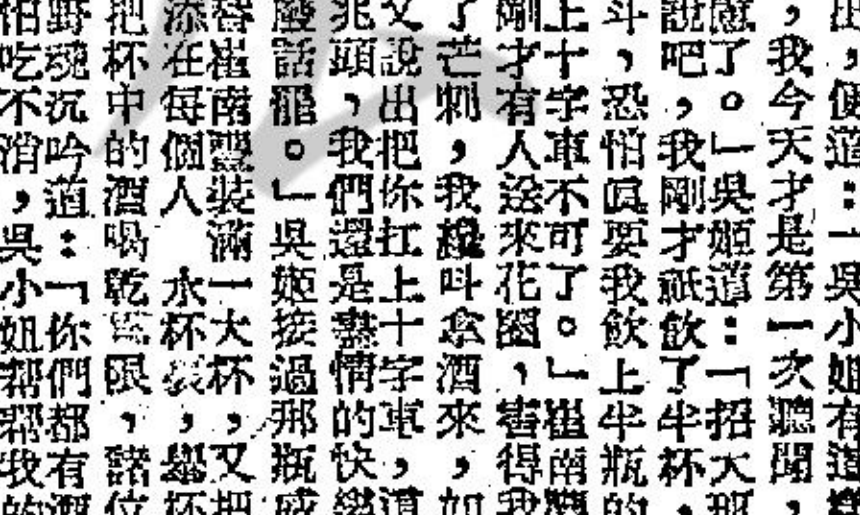 出,便道:「吳小姐有這樣
,我今天才是第一次聽聞,
了。」吳姬道:「招大那
說吧,我剛才祇飲了半杯,
斗,恐怕真要我飲上半瓶的
上十字車不可了。」崔南靈
剛才有人送來花圈,害得我
了芒刺,我纔叫拿酒來,如
又說出把你扛上十字車,道
兆頭,我們還是熱情的快
廢話罷。」吳姬接過那瓶威
替崔南靈裝滿一大杯,又把
添在每個人水杯裝,舉杯
把杯中的酒喝乾為限,諸位
野魂沉吟道:「你們都有酒
怕吃不消,吳小姐幫幫我的